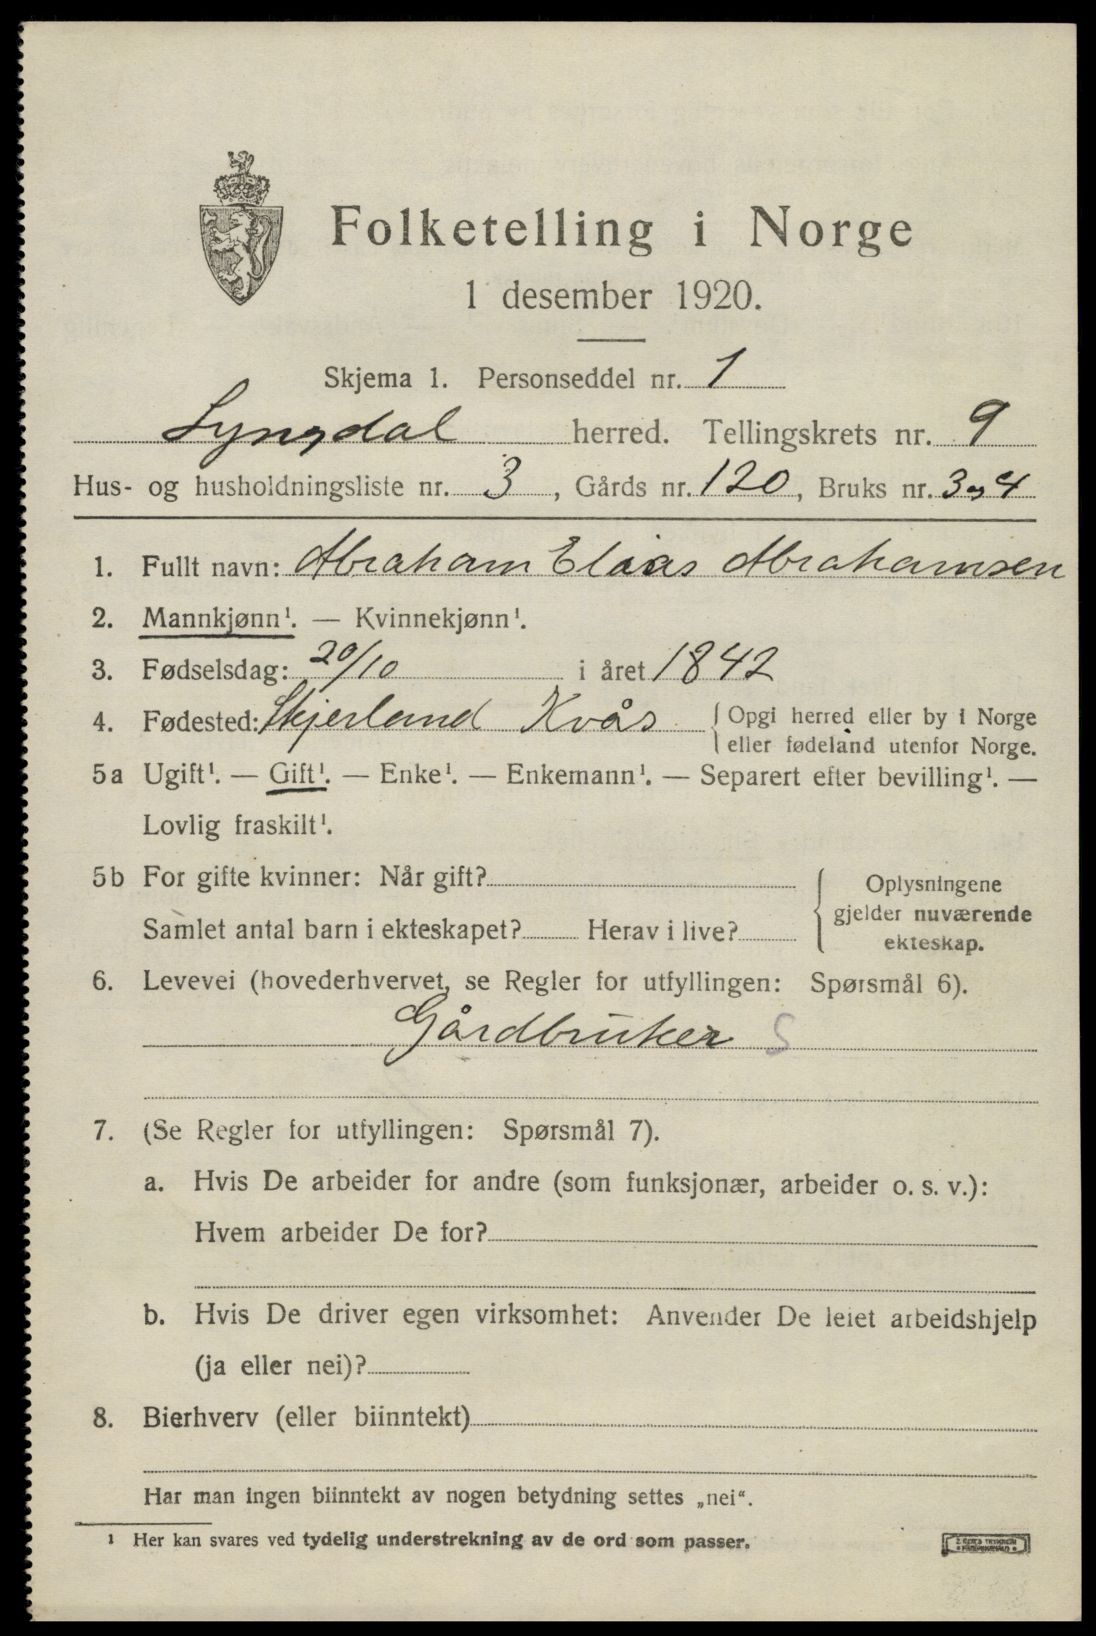 Folketelling i Norge
1 desember 1920.
Skjema 1. Personseddel nr. 1
Lyngdal herred. Tellingskrets nr. 9
Hus- og husholdningsliste nr. 3, Gårds nr. 120, Bruks nr. 3 og 4
1. Fullt navn: Abraham Elias Abrahamsen
2. Mannkjønn¹. — Kvinnekjønn¹.
3. Fødselsdag: 20/10 i året 1842
4. Fødested: Skjerland Kvås { Opgi herred eller by i Norge
eller fødeland utenfor Norge.
5a Ugift¹. — Gift¹. — Enke¹. — Enkemann¹. — Separert efter bevilling¹. —
Lovlig fraskilt¹.
5b For gifte kvinner: Når gift?
Samlet antal barn i ekteskapet? Herav i live?
Oplysningene
gjelder nuværende
ekteskap.
6. Levevei (hovederhvervet, se Regler for utfyllingen: Spørsmål 6).
Gårdbruker S
7. (Se Regler for utfyllingen: Spørsmål 7).
a. Hvis De arbeider for andre (som funksjonær, arbeider o. s. v.):
Hvem arbeider De for?
b. Hvis De driver egen virksomhet: Anvender De leiet arbeidshjelp
(ja eller nei)?
8. Bierhverv (eller biinntekt)
Har man ingen biinntekt av nogen betydning settes „nei“.
¹ Her kan svares ved tydelig understrekning av de ord som passer.